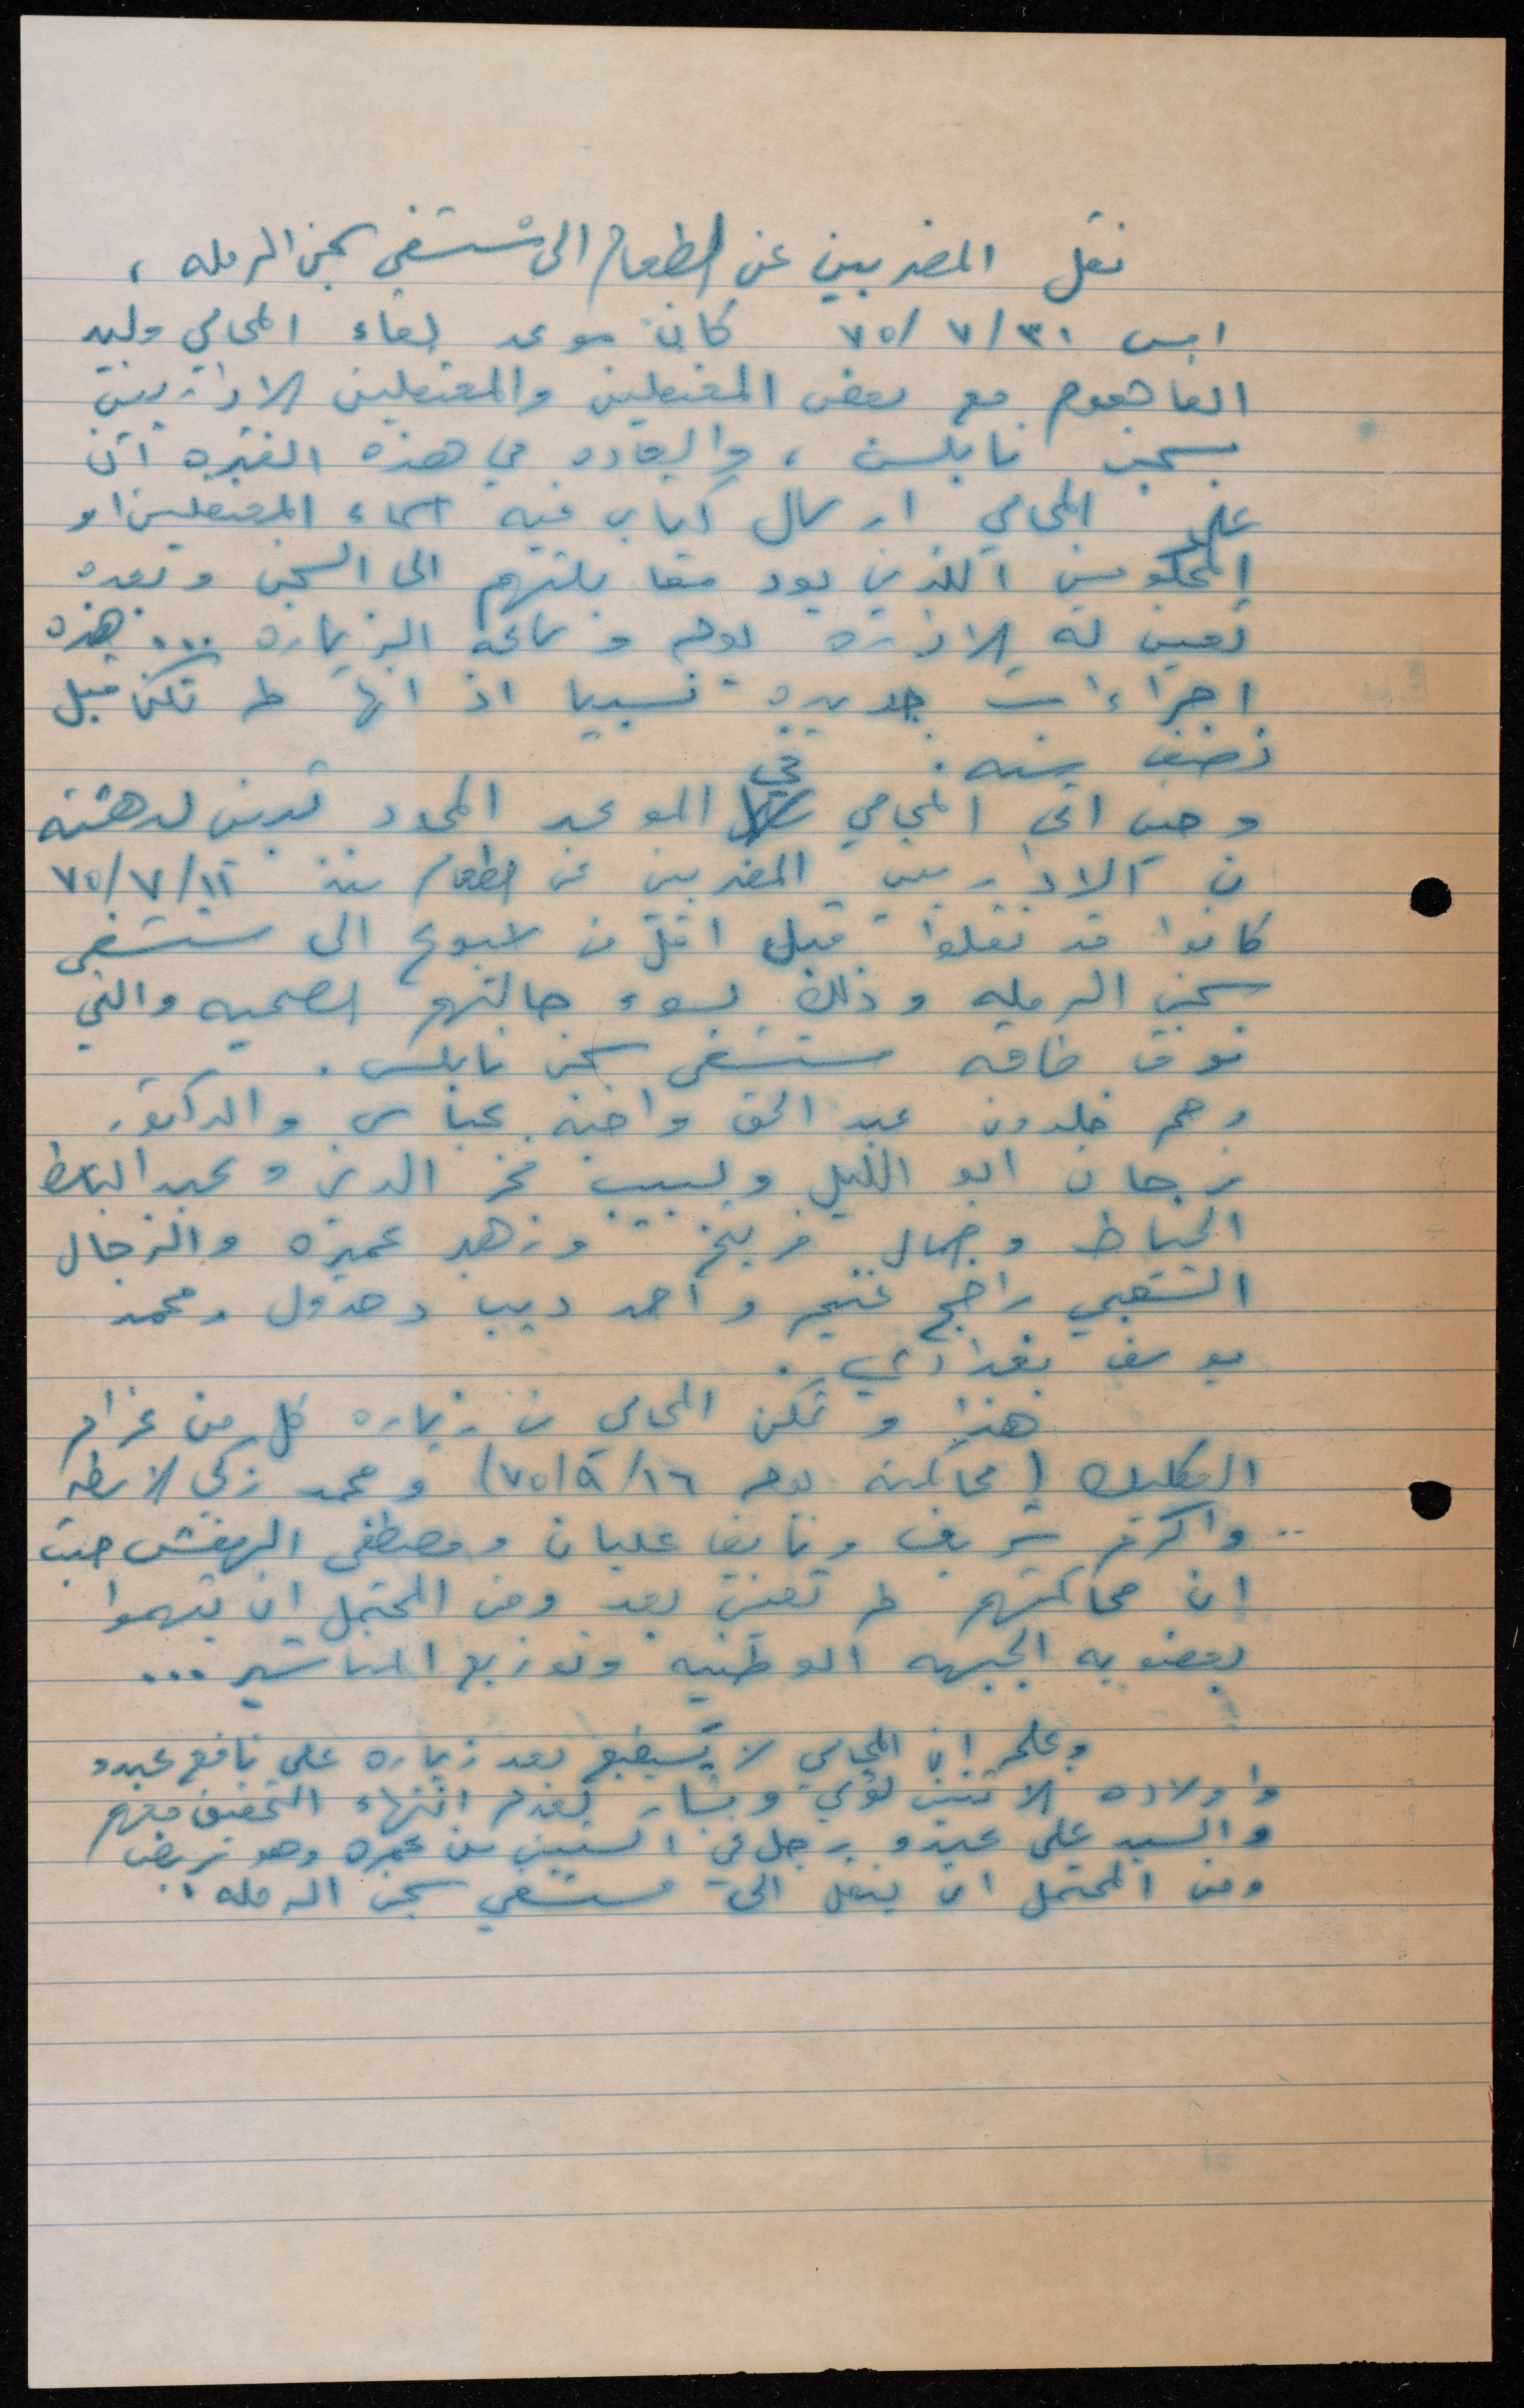 نقل المضربين عن الطعام الى مستشفى سجن الرمله ،
امس ٧٥/٧/٣١ كان موعد لقاء المحامي وليد
الفاهوم مع بعض المعتقلين والمعتقلين الاداريين
بسجن نابلس ، والعاده في هذه الفتره ان
على المحامي ارسال كتاب فيه اسماء المعتقلين او
المحكومين اللذين يود مقابلتهم الى السجن وبعده
تعين له الاداره يوم وساعة الزياره ... هذه
اجراءات جديده نسبيا اذ انها لم تكن قبل
نصف سنه .
وحين اتى المحامي في الموعد المحدد تبين لدهشته
ان الاداريين المضربين عن الطعام منذ ٧٥/٧/١١
كانوا قد نقلوا قبل اقل من اسبوع الى مستشفى
سجن الرمله وذلك لسوء حالتهم الصحيه والتي
فوق طاقة مستشفى سجن نابلس .
وهم خلدون عبد الحق واخيه عباس والدكتور
فرحان ابو الليل ولبيب فخر الدين وعبد الباسط
الخياط وجمال فريتخ وزهد عميره والزجال
الشعبي راجح غنيم واحمد ديب دحدول ومحمد
يوسف بغدادي .
هذا وتمكن المحامي من زياره كل من عزام
(محاكمته يوم ٧٥/٩/١٦) ومحمد زكي الاسطه
واكرم شريف ونايف عليان ومصطفى حيث
ان محاكمتهم لم تعين بعد ومن المحتمل ان يتهموا
بعضويه الجبهه الوطنيه وتوزيع المناشير ...
وعلم ان المحامي لا يستطيع بعد زياره علي نافع عبدو
واولاده الاثنين لؤي وبشار لعدم انتهاء التحقيق معهم
والسيد علي عبدو رجل في الستين من عمره وهو مريض
ومن المحتمل ان ينقل الى مستشفى سجن الرمله .